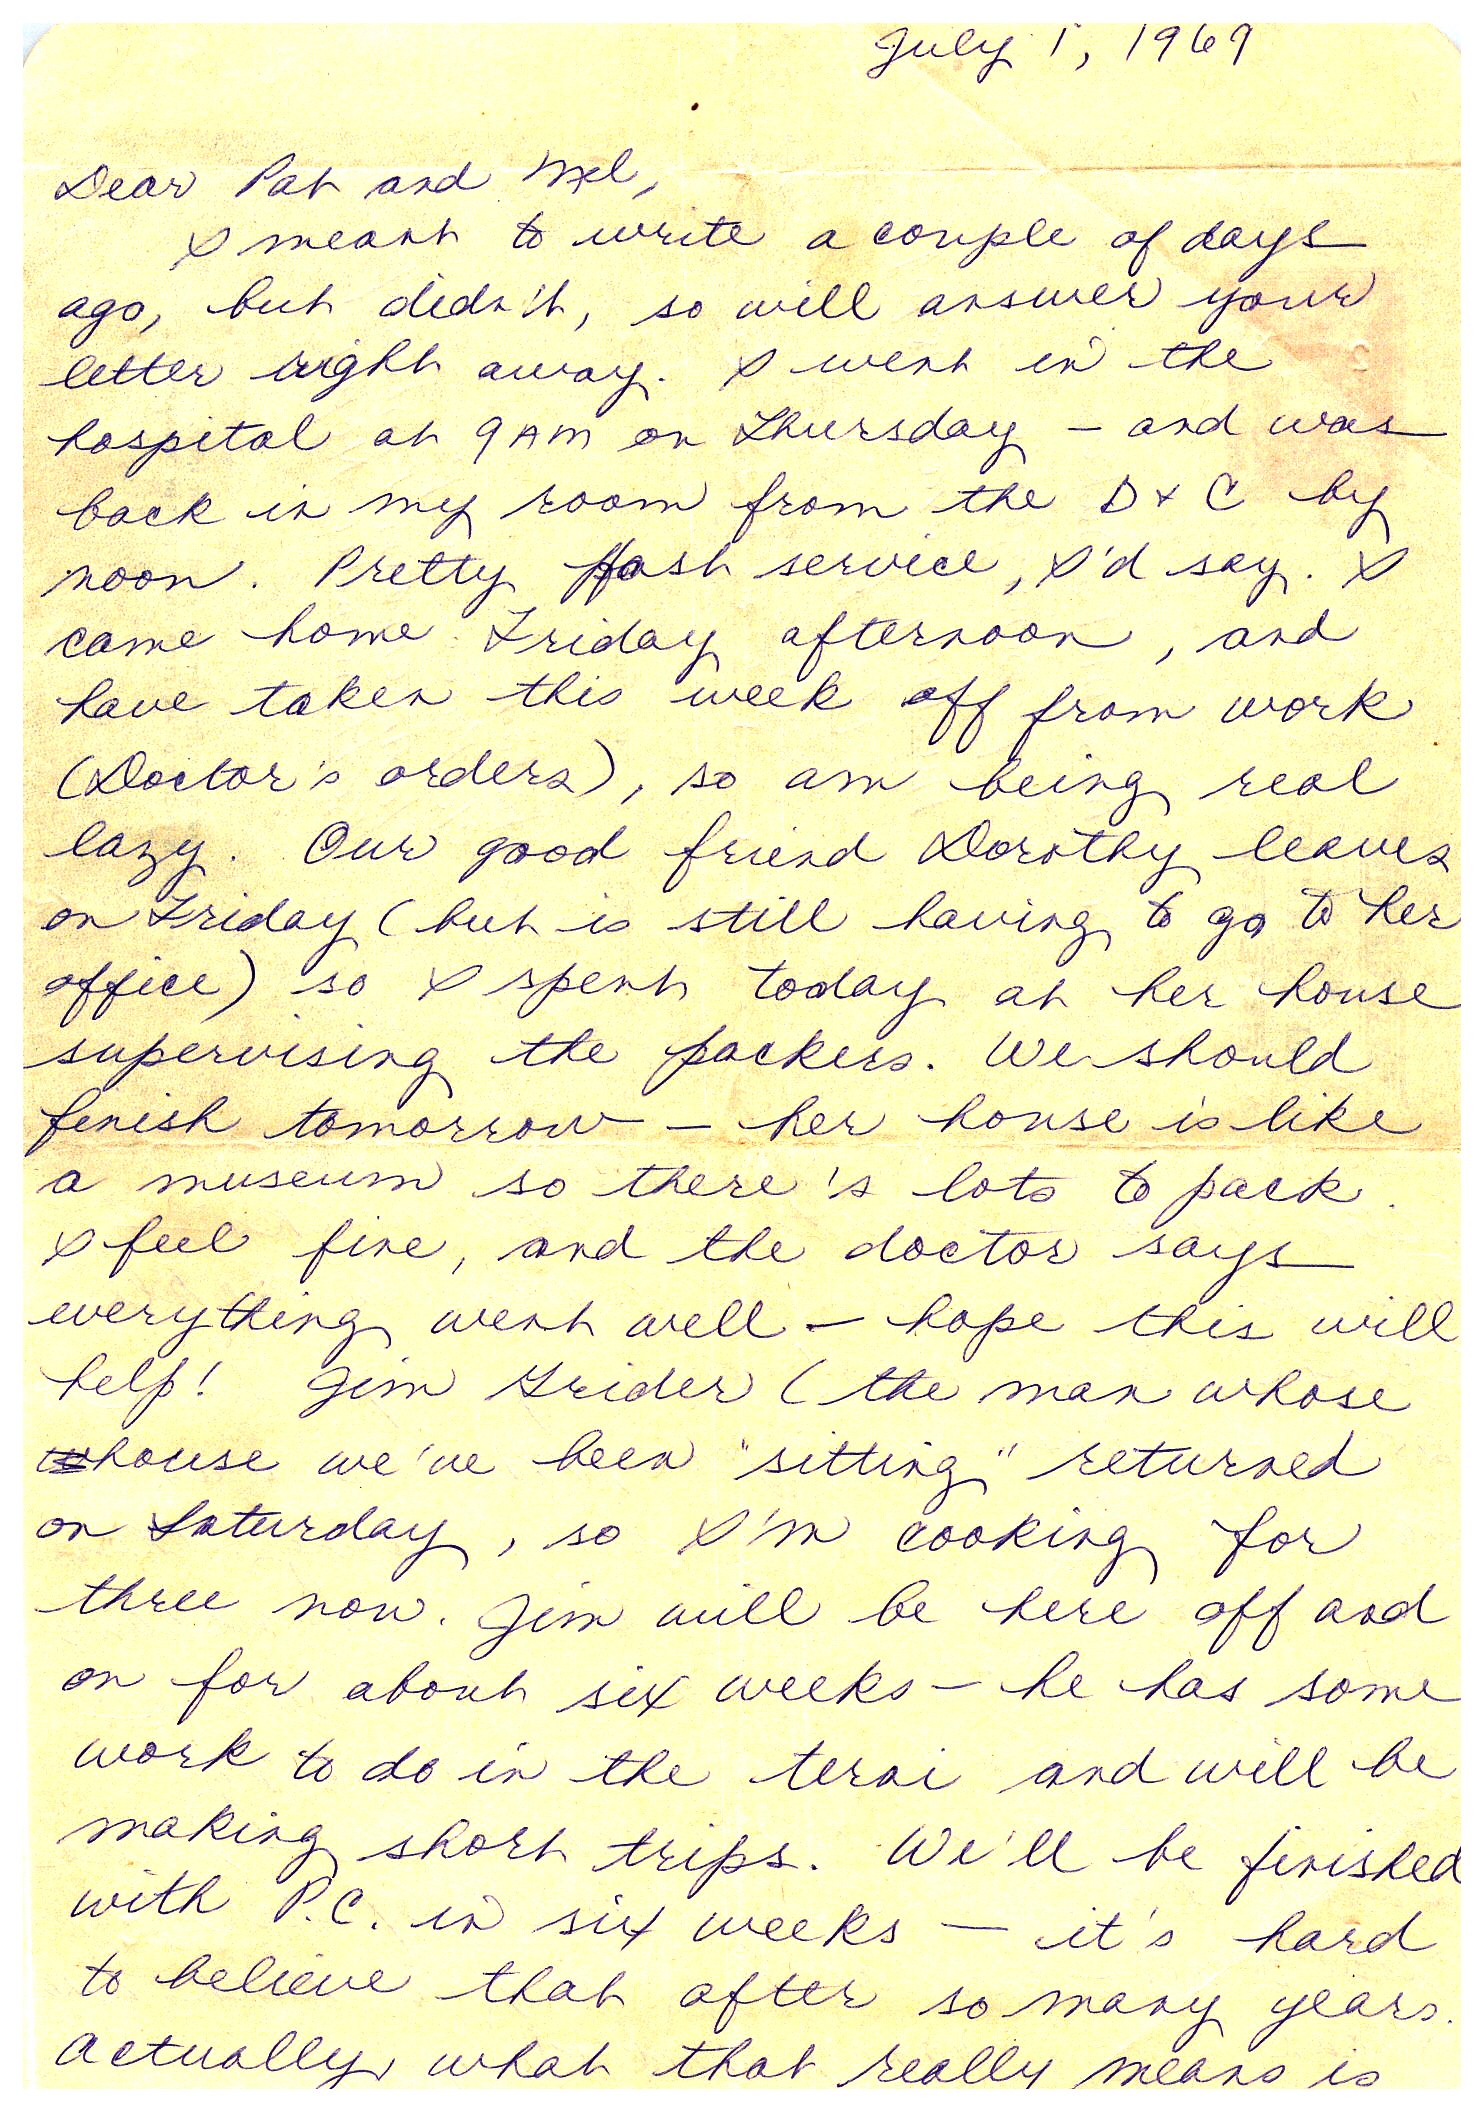 July 1, 1969
Dear Pat and Mel,
I meant to write a couple of days
ago, but didn't, so will answer your
letter right away. I went in the
hospital at 9 AM on Thursday – and was
back in my room from the D + C by
noon. Pretty fast service, I'd say. I
came home Friday afternoon, and
have taken this week off from work
(Doctor's orders), so am being real
lazy. Our good friend Dorothy leaves
on Friday (but is still having to go to her
office) so I spent today at her house
supervising the packers. We should
finish tomorrow – her house is like
a museum so there's lots to pack.
I feel fine, and the doctor says
everything went well – hope this will
help! Jim Grider (the man whose
house we've been "sitting" returned
on Saturday, so I'm cooking for
three now. Jim will be here off and
on for about six weeks – he has some
work to do in the terai and will be
making short trips. We'll be finished
with P.C. in six weeks – it's hard
to believe that after so many years.
Actually what that really means is